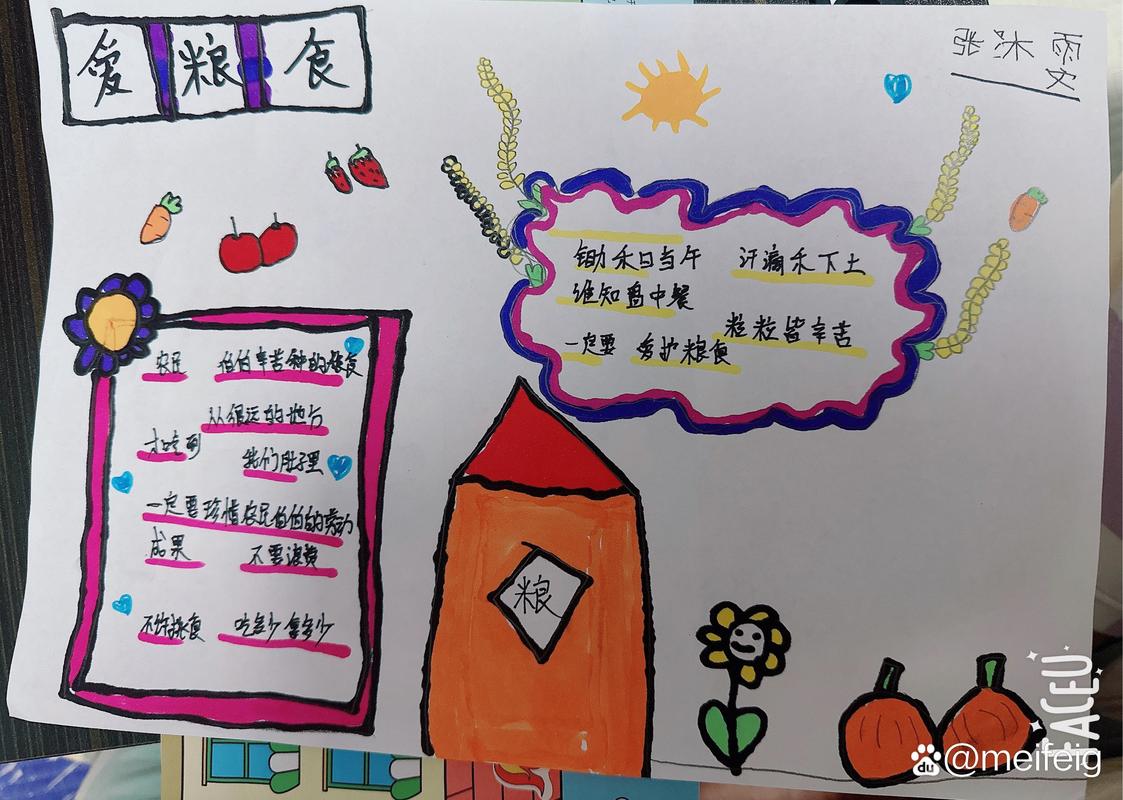 爱粮食
锄禾日当午 汗滴禾下土
谁知盘中餐
粒粒皆辛苦
一定要 爱护粮食
农民 伯伯辛苦种的粮食
从很远的地方
才吃到 我们肚子里
一定要珍惜农民伯伯的劳动
成果 不要浪费
不许挑食 吃多少拿多少
粮
du @meifeig